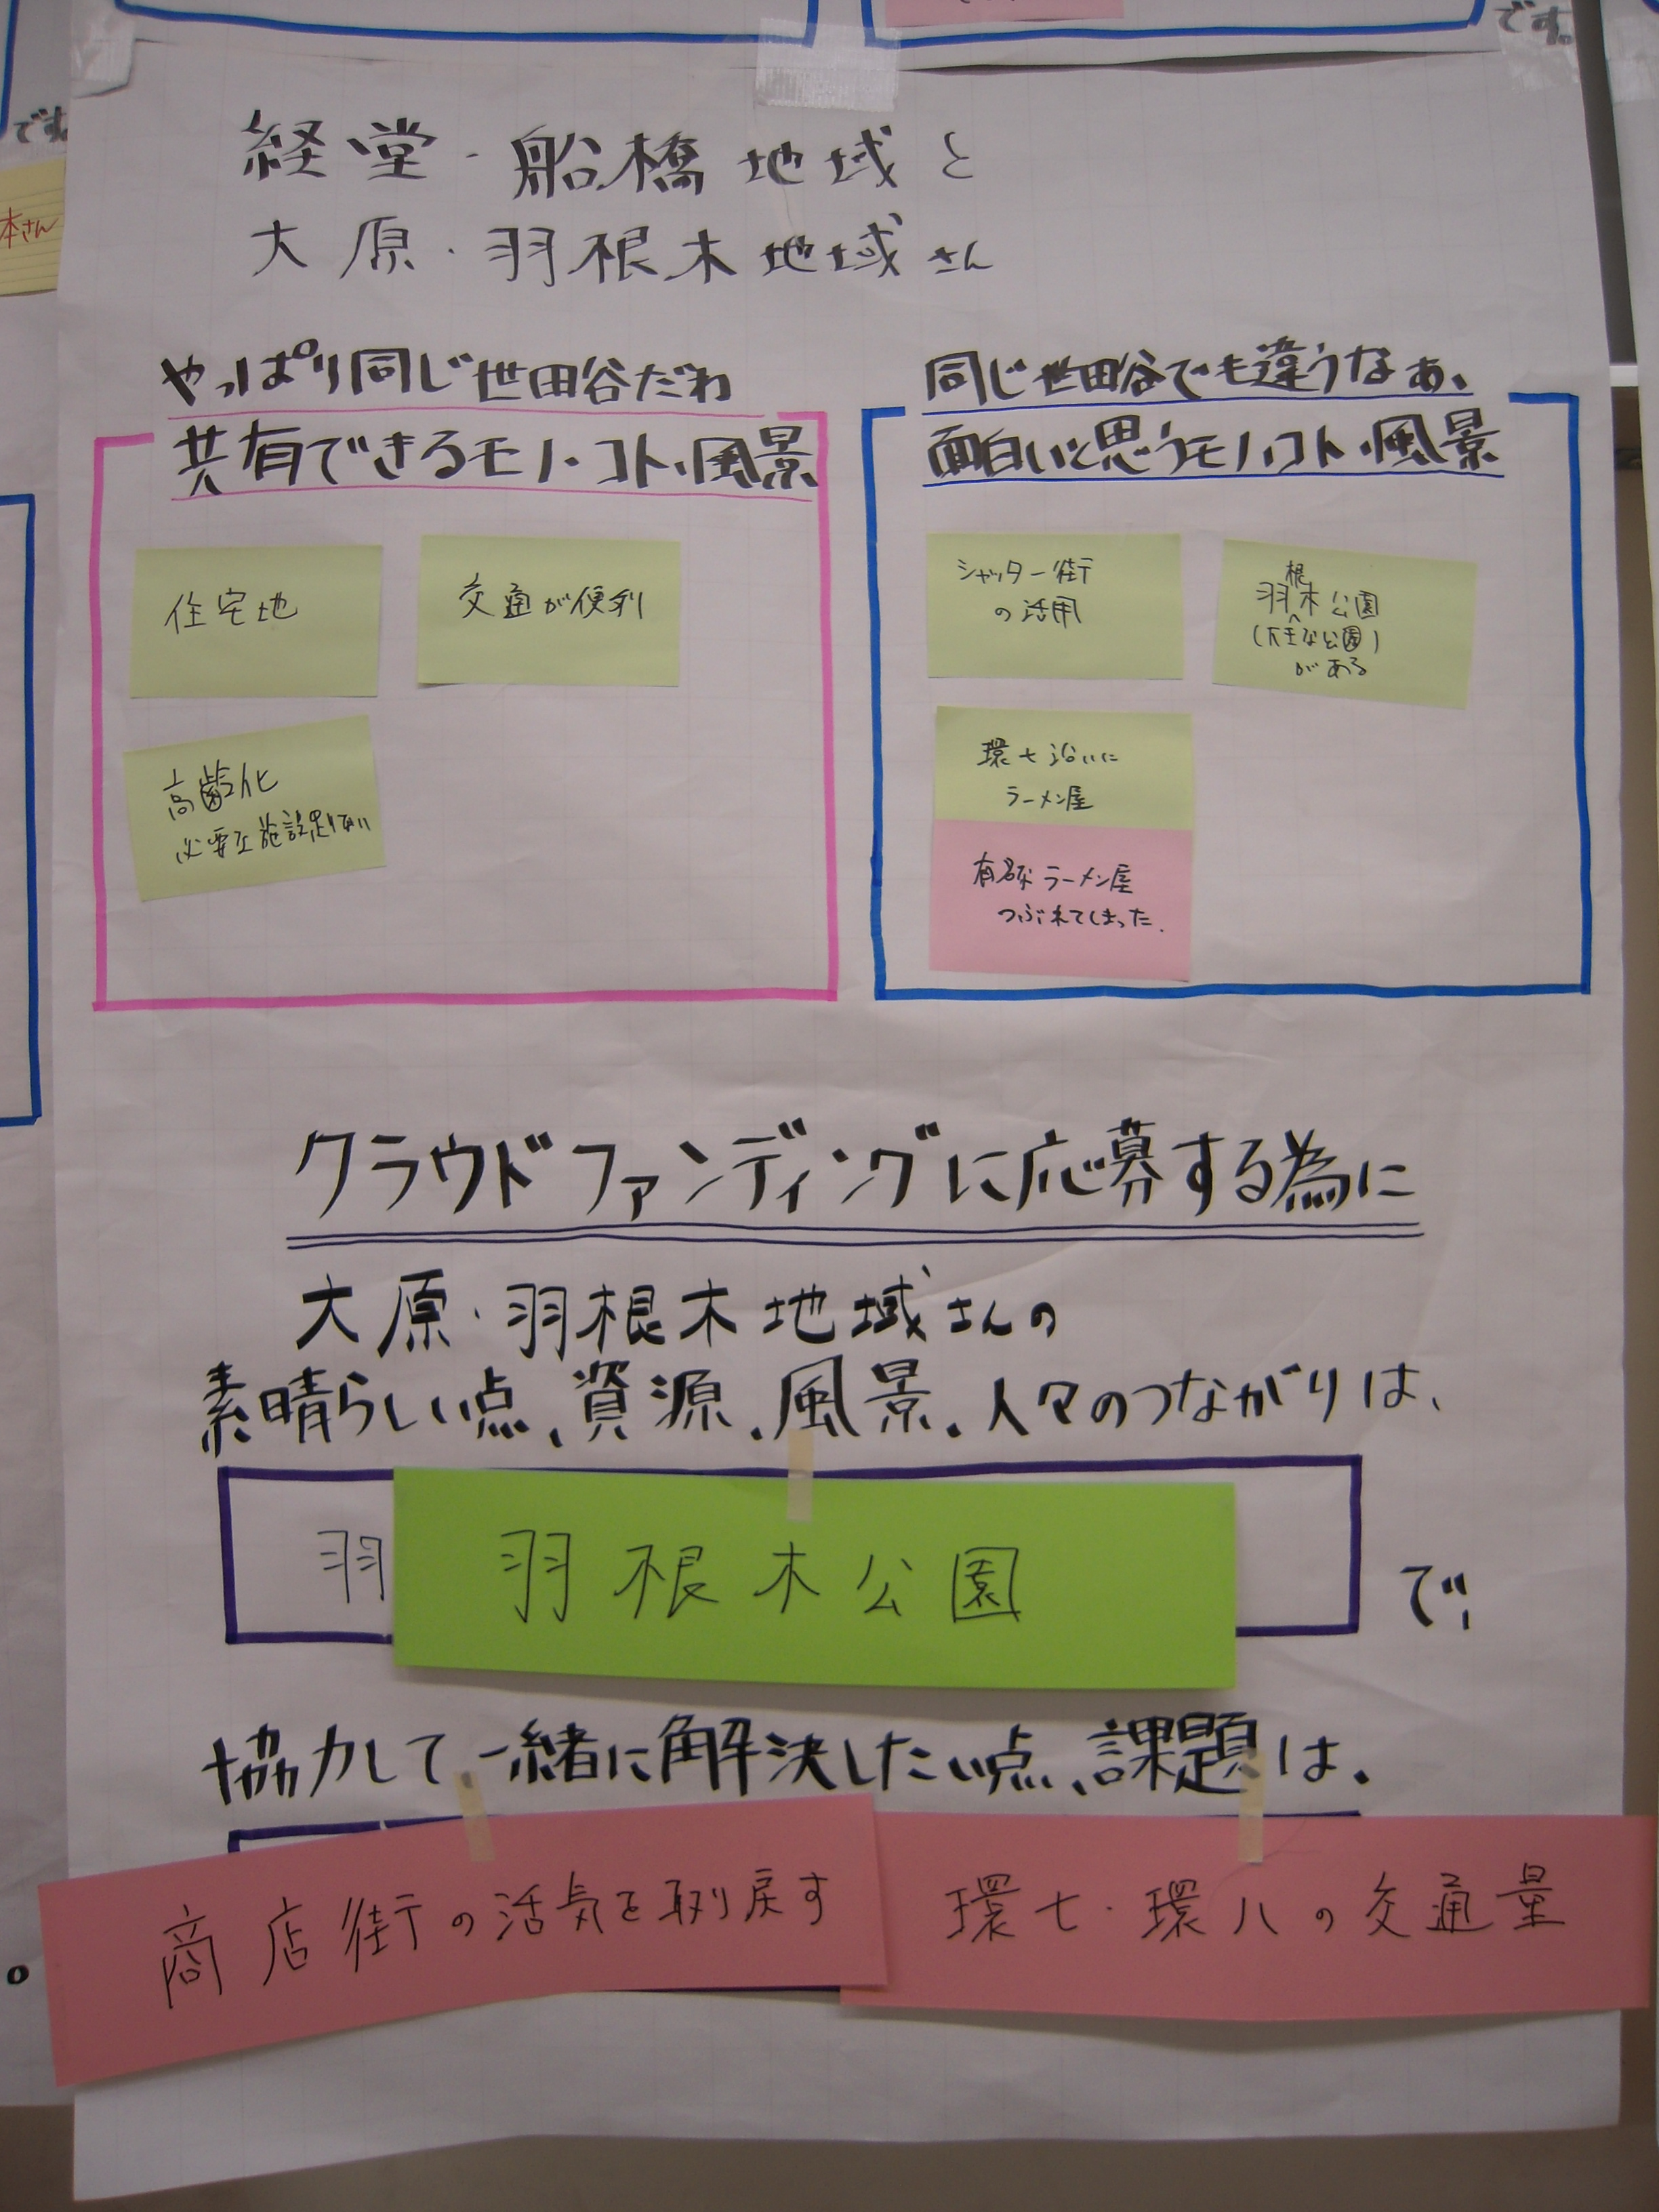 です。
です
本さん
経堂・船橋地域と
大原・羽根木地域さん
やっぱり同じ世田谷だわ
共有できるモノ・コト・風景
住宅地
交通が便利
高齢化
必要な施設足りない
同じ世田谷でも違うなぁ、
面白いと思うモノ・コト・風景
シャッター街
の活用
羽根木公園
(大きな公園)
がある
環七沿いに
ラーメン屋
有名なラーメン屋
つぶれてしまった.
クラウドファンディングに応募する為に
大原・羽根木地域さんの
素晴らしい点、資源、風景、人々のつながりは、
羽
羽根木公園
で、
協力して、一緒に解決したい点、課題は、
商店街の活気を取り戻す
環七・環八の交通量
。